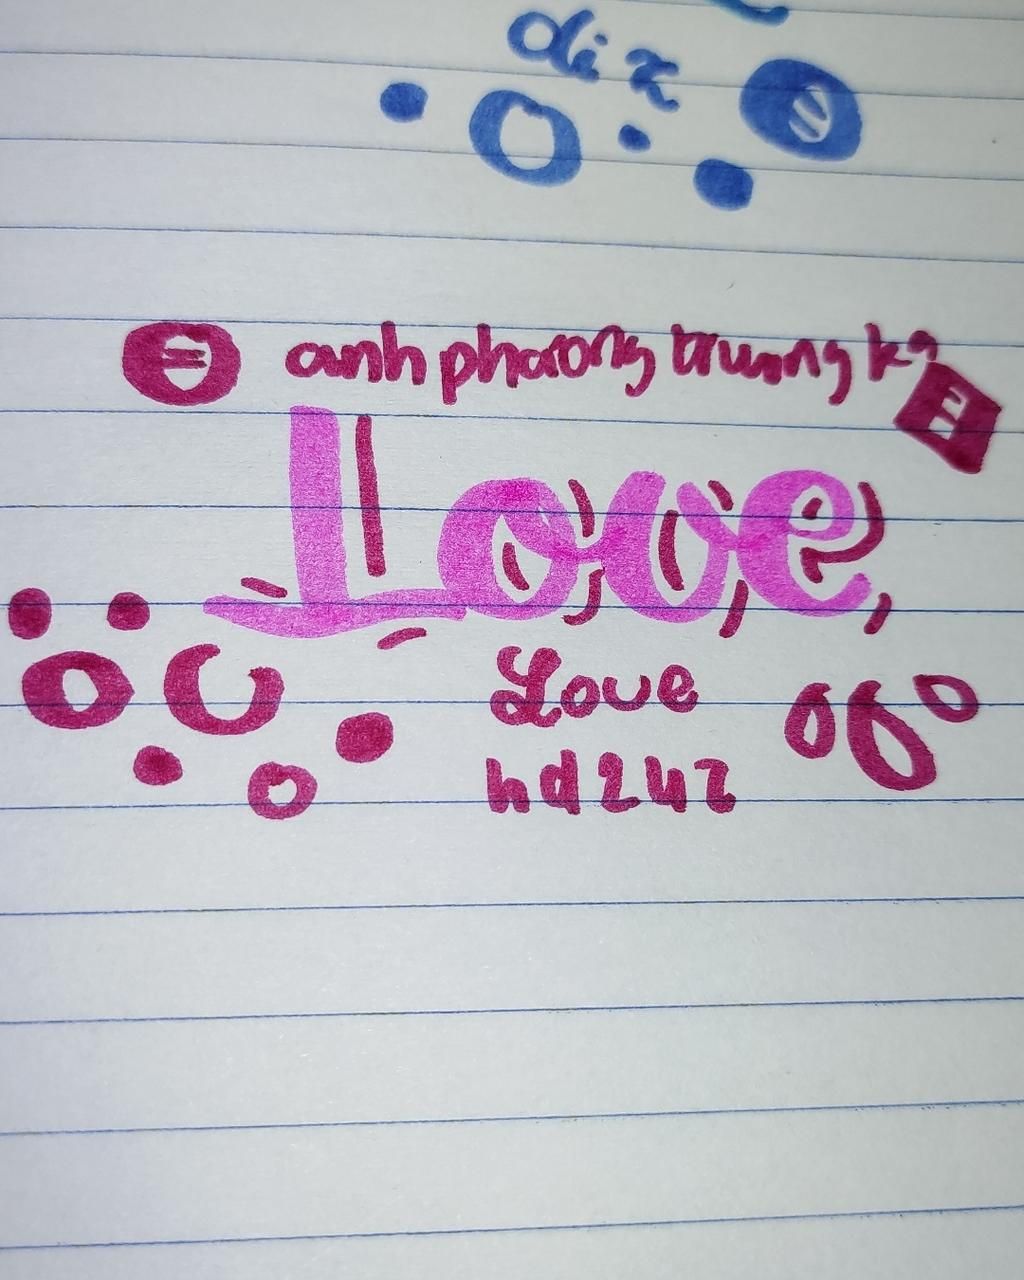 dix
anh phaong truung k9
Love
Love
hd2u2